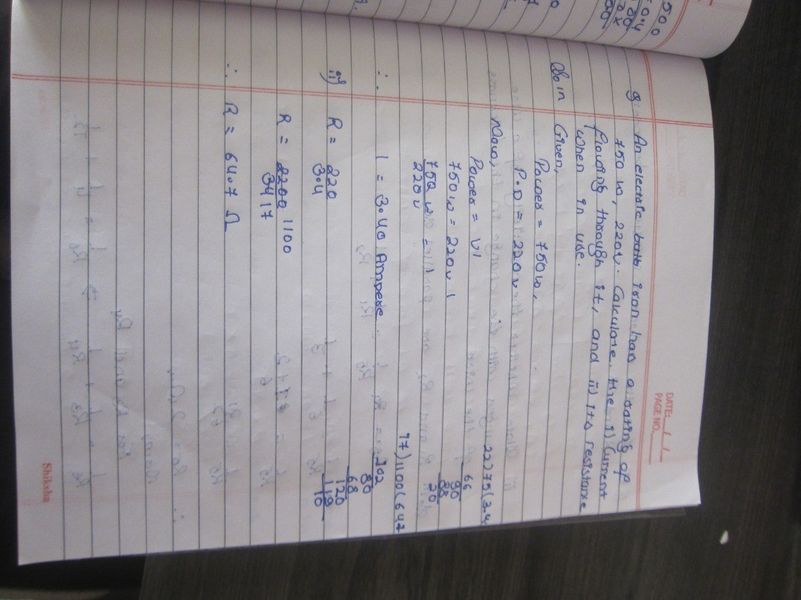 DATE:
PAGE NO.
Q An electric iron has a rating of
750 w, 220v. Calculate the i) Current
flowing through it, and ii) its resistance
when in use.
Given,
Power = 750w,
P.D = 220v
Now,
Power = VI
750w = 220v I
750 w
220v
I = 3.40 Ampere
22)75(3.4
66
90
88
20
ii) R = 220
3.4
R = 2200 1100
34 17
∴ R = 64.7 Ω
17)1100(647
102
80
68
120
119
10
Shiksha